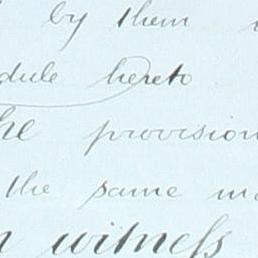 by them
dule hereto
he provision
the same
witness